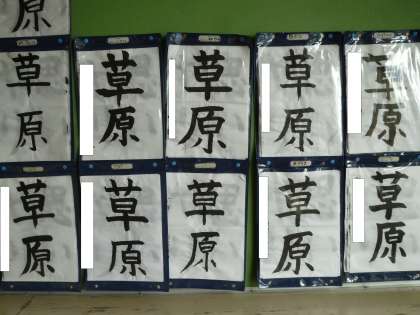 原
草 草 草 草 草
原 原 原 原 原
草 草 草 草 草
原 原 原 原 原